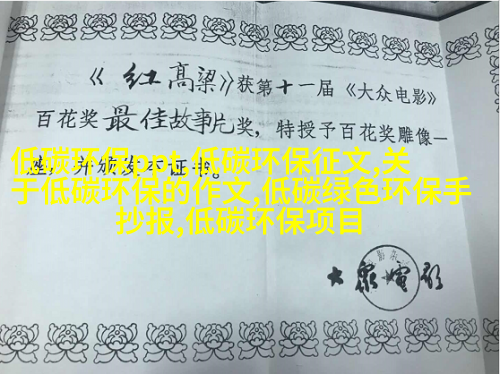 《红高粱》获第十一届《大众电影》
百花奖最佳故事片奖，特授予百花奖雕像一
座，并颁发本证书。
低碳环保ppt,低碳环保征文,关
于低碳环保的作文,低碳绿色环保手
抄报,低碳环保项目
大众电影